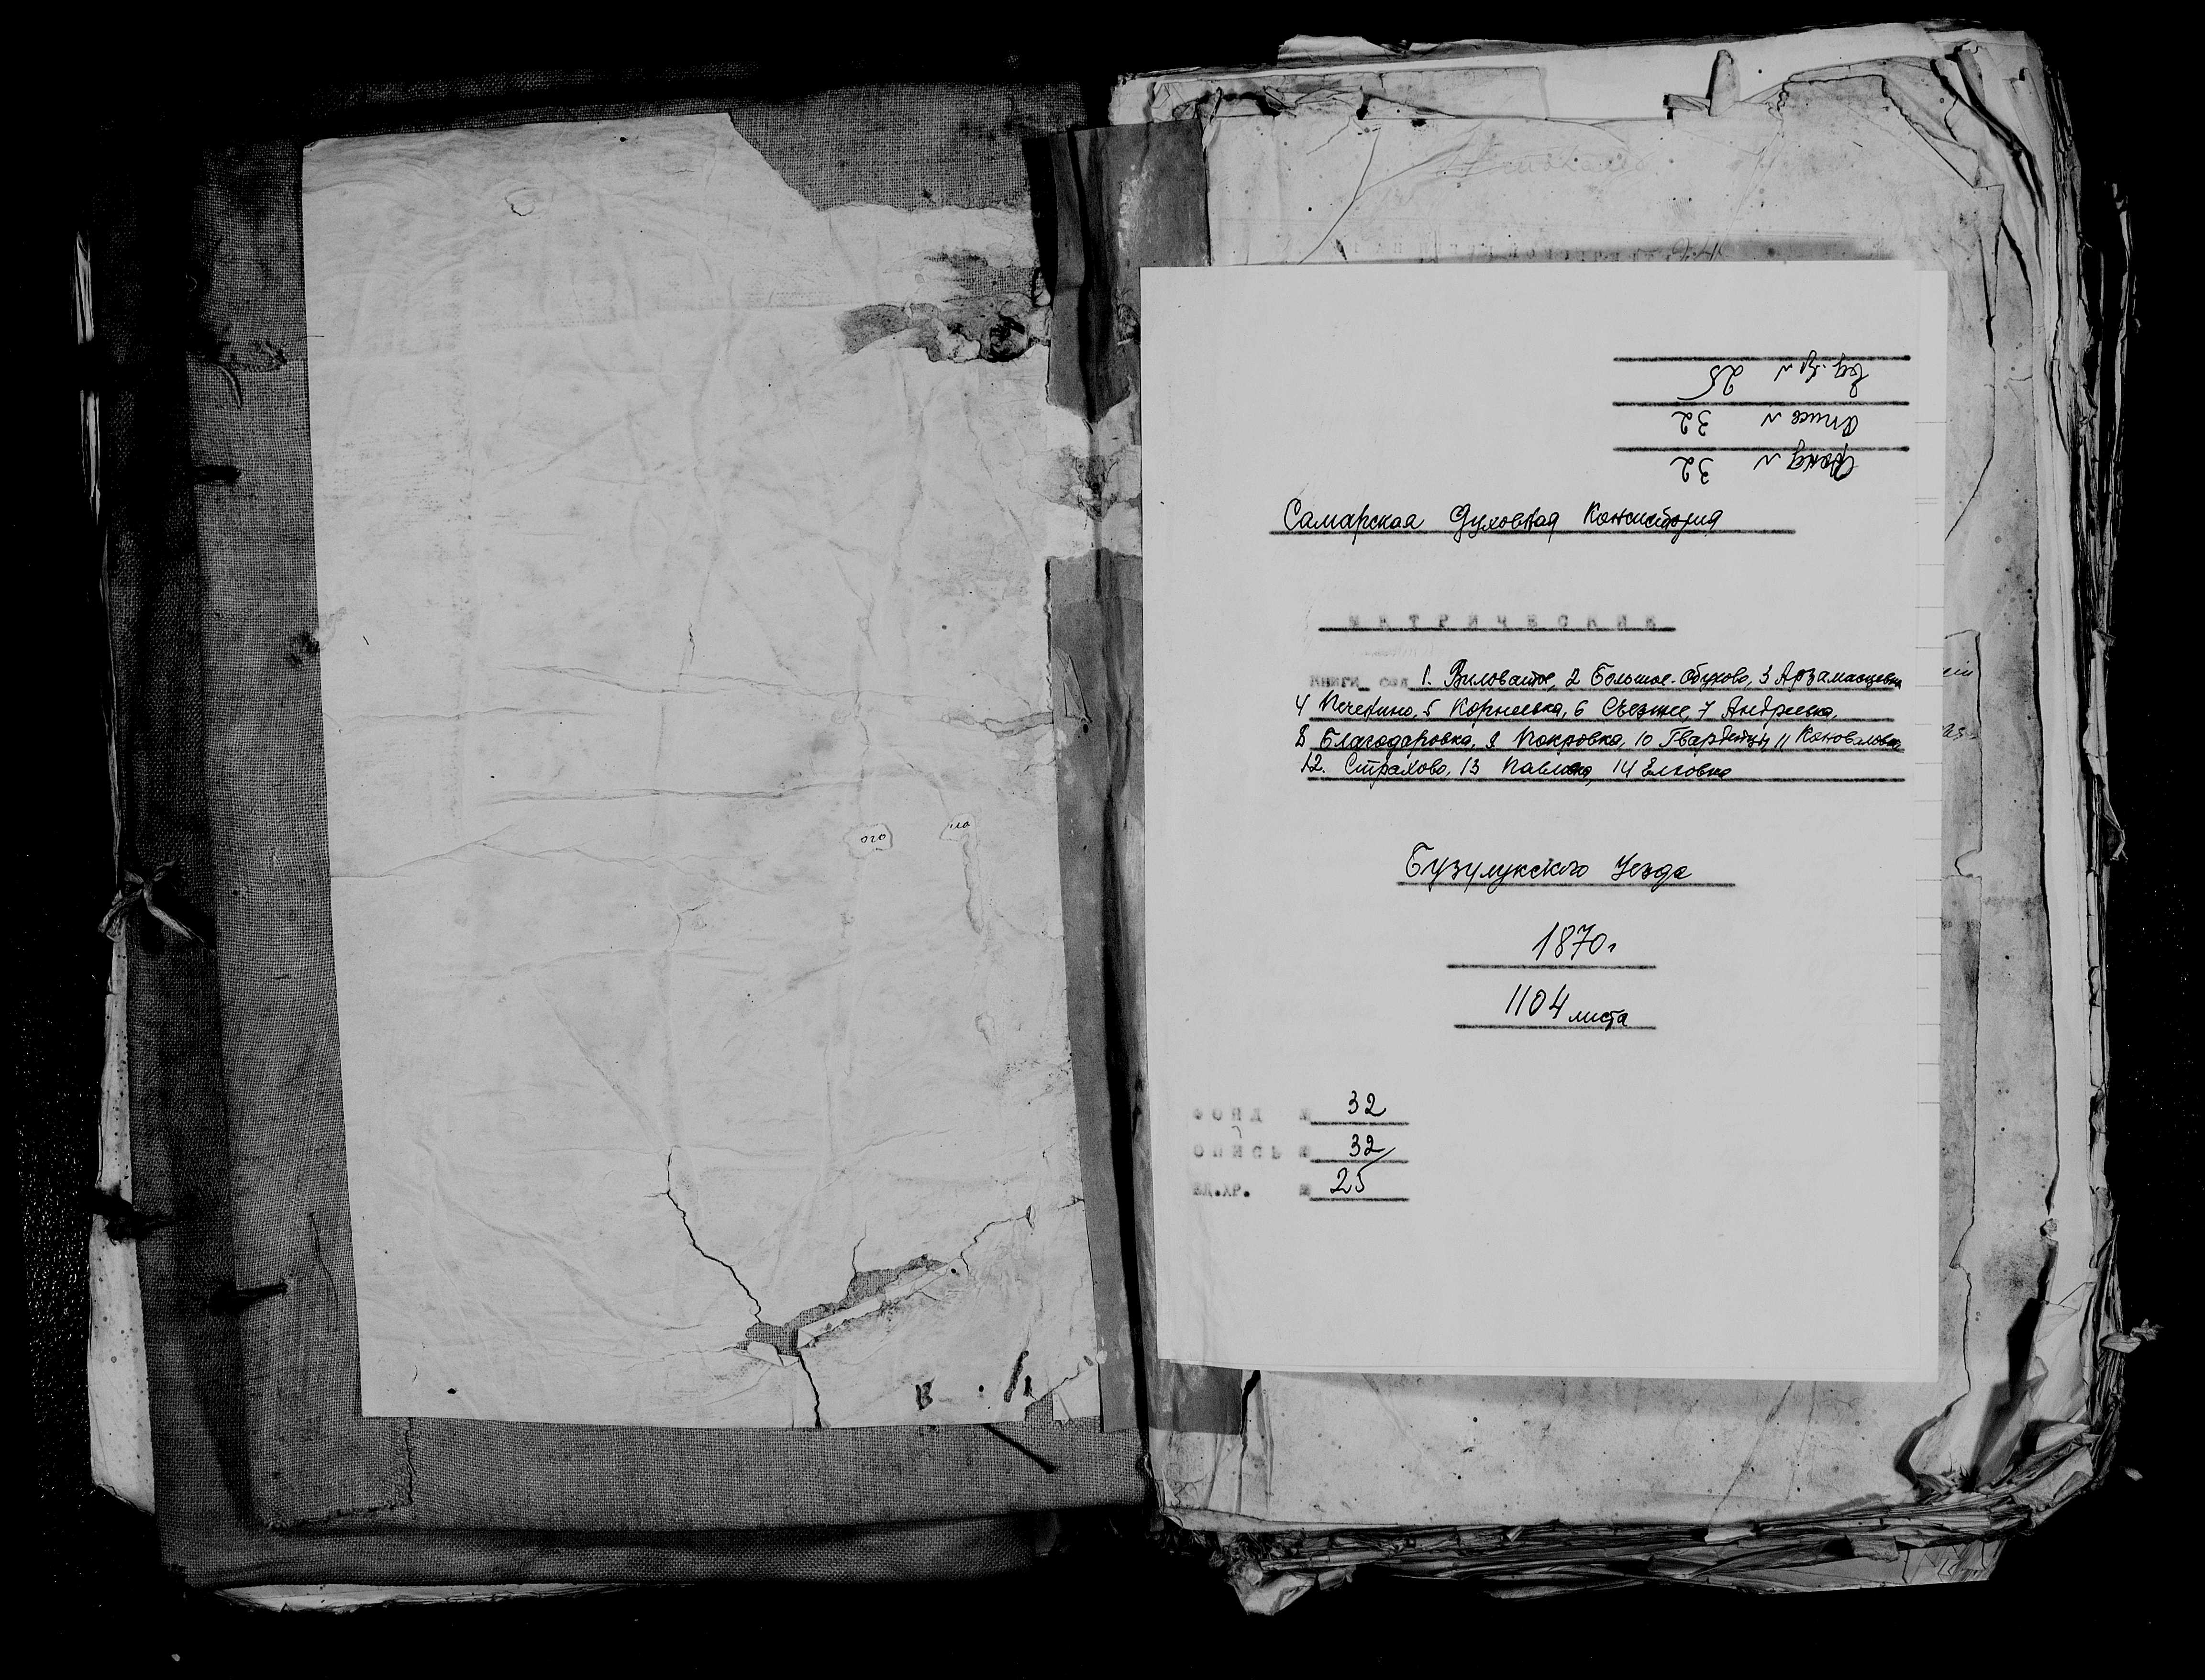 Ед.хр № 25
Опись № 32
Фонд № 32
Самарская Духовная Консистория
МЕТРИЧЕСКИЕ
Книги сёл 1. Виловатое, 2 Большое-Обухово, 3 Арзамасцевка
4 Печенино, 5 Корнеевка, 6 Съезжее, 7 Андреевка,
8 Благодаровка, 9 Покровка, 10 Гвардейцы, 11 Коноваловка
12. Страхово, 13 Павловка, 14 Елховка
Бузулукского Уезда
1870г
1104 листа
ФОНД № 32
ОПИСЬ № 32
ЕД.ХР. № 25
ого